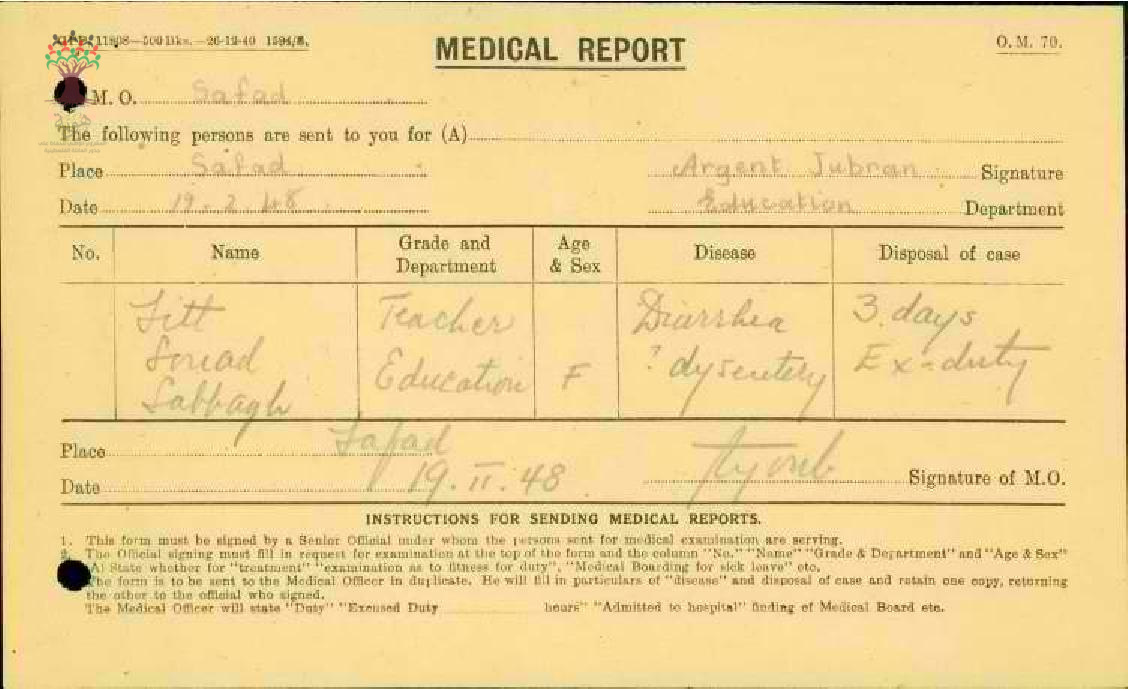 11808—500 Bks.—26-12-40 1594/S.
MEDICAL REPORT
O. M. 70.
M. O. Safad
The following persons are sent to you for (A)
Place Safad
Argent Jubran Signature
Date 19. 2. 48
Education Department
No. Name Grade and Department Age & Sex Disease Disposal of case
Sitt Teacher Diarrhea 3. days
Souad Education F ? dysentery Ex-duty
Sabbagh
Place Safad
Date 19. II. 48
Signature of M.O.
INSTRUCTIONS FOR SENDING MEDICAL REPORTS.
1. This form must be signed by a Senior Official under whom the persons sent for medical examination are serving.
2. The Official signing must fill in request for examination at the top of the form and the column "No." "Name" "Grade & Department" and "Age & Sex"
(A) State whether for "treatment" "examination as to fitness for duty", "Medical Boarding for sick leave" etc.
The form is to be sent to the Medical Officer in duplicate. He will fill in particulars of "disease" and disposal of case and retain one copy, returning
the other to the official who signed.
The Medical Officer will state "Duty" "Excused Duty hours" "Admitted to hospital" finding of Medical Board etc.